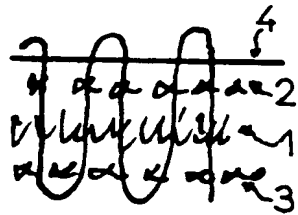 4
2
1
3